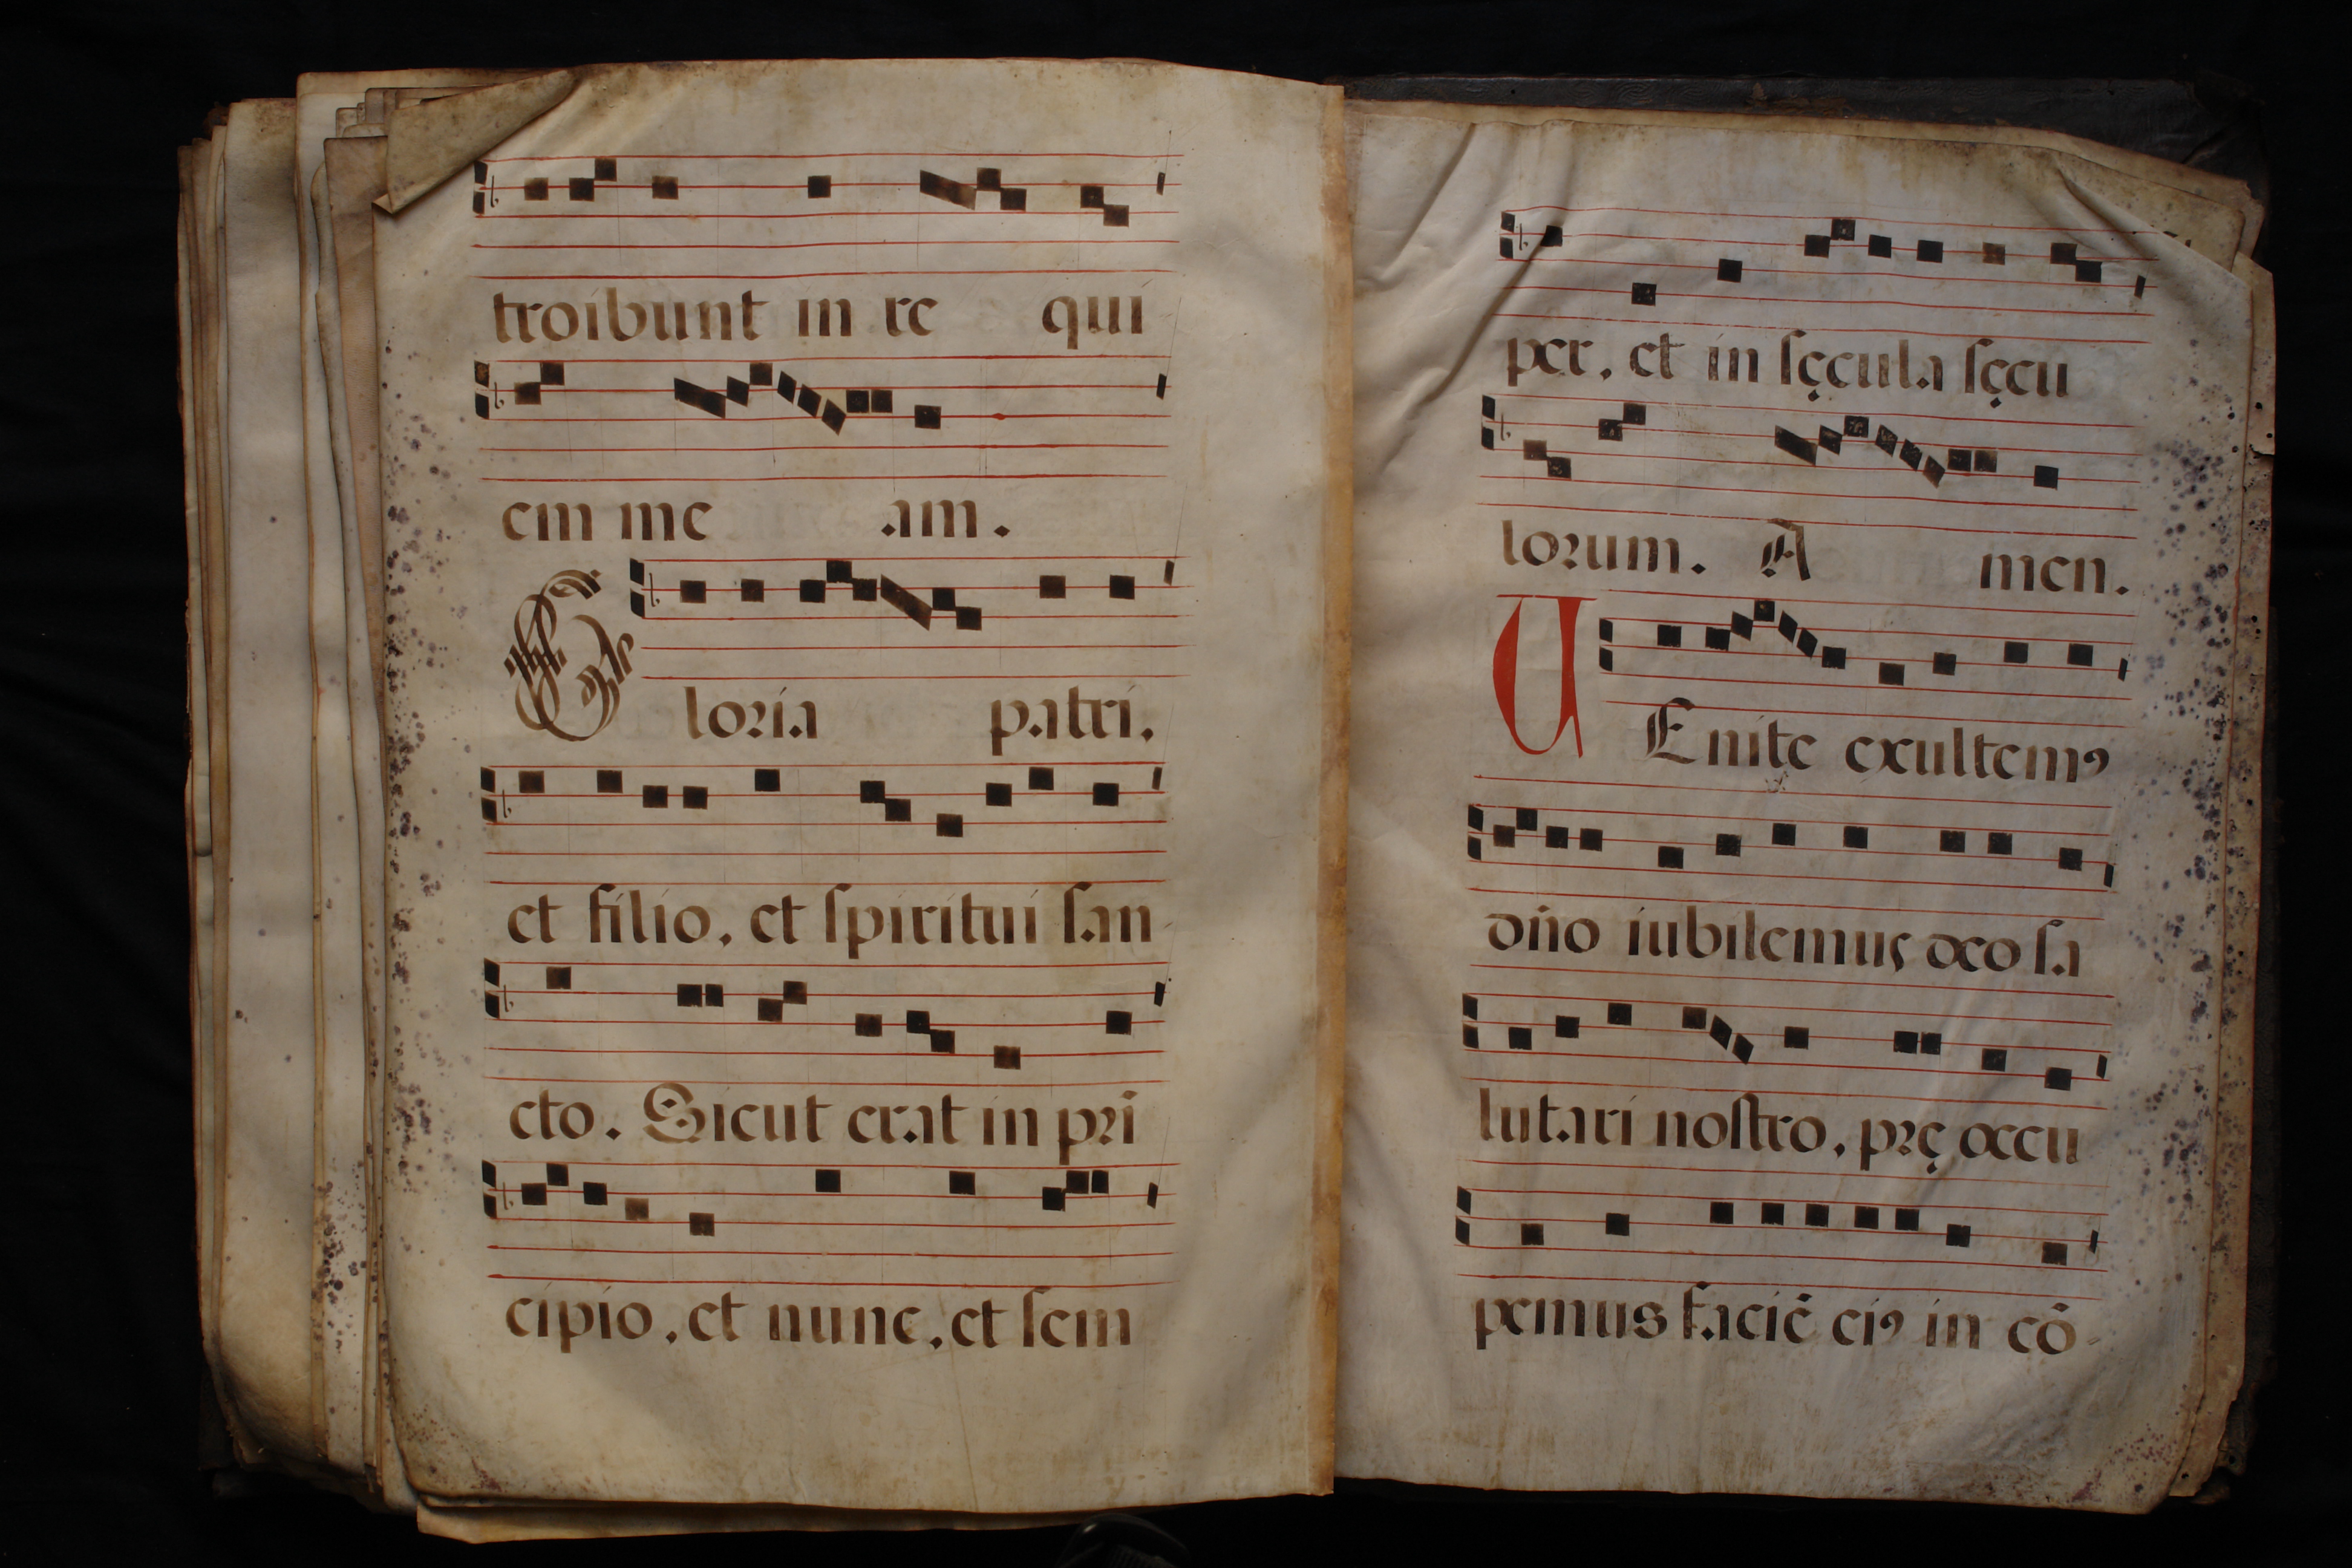 troibunt in re qui
em me am.
Gloria patri,
et filio, et ſpiritui ſan
cto. Sicut erat in pri
cipio, et nunc, et ſem
per, et in ſęcula ſęcu
lorum. A men.
UEnite exultemꝯ
dño iubilemus deo ſa
lutari noſtro, prę occu
pemus faciē eiꝯ in cō